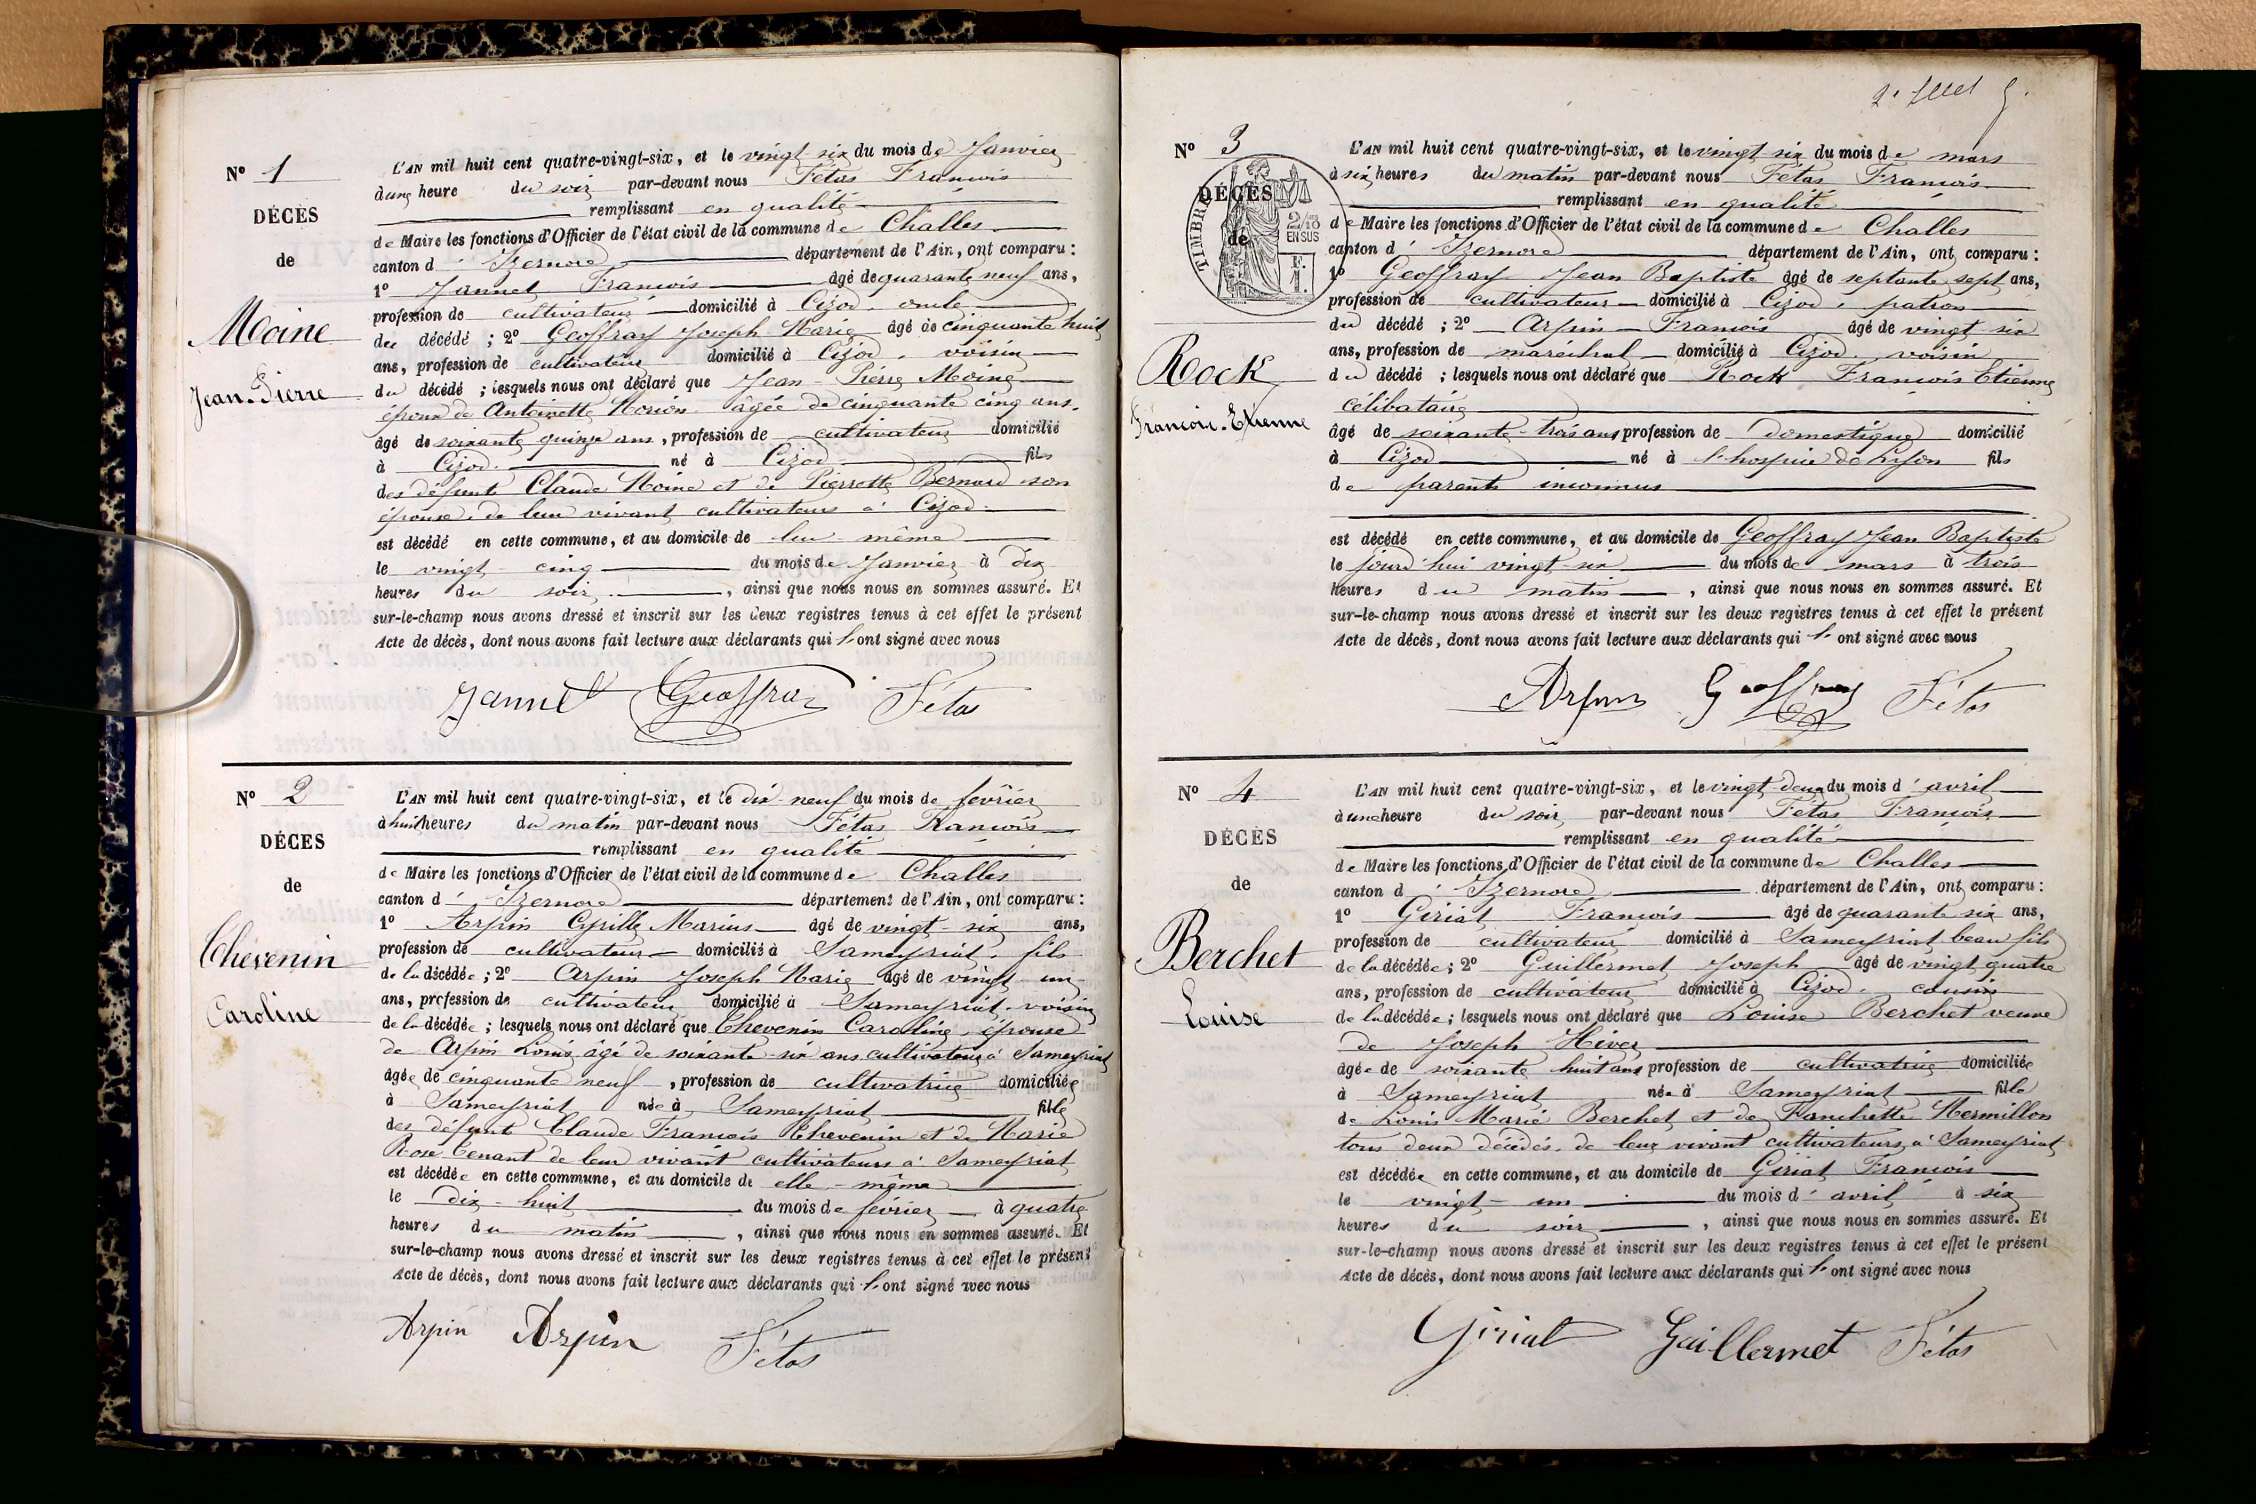 N° 1
DÉCÈS
de
Moine
Jean-Pierre
L'AN mil huit cent quatre-vingt-six, et le vingt six du mois de Janvier
à une heure du soir par-devant nous Fétas François
remplissant en qualité
de Maire les fonctions d'Officier de l'état civil de la commune de Challes
canton d'Izernore département de l'Ain, ont comparu :
1° Jannet François âgé de quarante neuf ans,
profession de cultivateur domicilié à Cizod, oncle
du décédé ; 2° Geoffray Joseph Marie âgé de cinquante huit
ans, profession de cultivateur domicilié à Cizod, voisin
du décédé ; lesquels nous ont déclaré que Jean-Pierre Moine
époux de Antoinette âgée de cinquante cinq ans.
âgé de soixante quinze ans, profession de cultivateur domicilié
à Cizod né à Cizod fils
des défunts Claude Moine et de Pierrette Bernard son
épouse, de leur vivant cultivateurs à Cizod.
est décédé en cette commune, et au domicile de lui-même
le vingt-cinq du mois de Janvier à dix
heures du soir, ainsi que nous nous en sommes assuré. Et
sur-le-champ nous avons dressé et inscrit sur les deux registres tenus à cet effet le présent
Acte de décès, dont nous avons fait lecture aux déclarants qui l'ont signé avec nous
Jannet Geoffray Fétas
N° 2
DÉCÈS
de
Chevenin
Caroline
L'AN mil huit cent quatre-vingt-six, et le dix-neuf du mois de février
à huit heures du matin par-devant nous Fétas François
remplissant en qualité
de Maire les fonctions d'Officier de l'état civil de la commune de Challes
canton d'Izernore département de l'Ain, ont comparu :
1° Arpin Cyrille Marius âgé de vingt-six ans,
profession de cultivateur domicilié à Sameyriat, fils
de la décédée ; 2° Arpin Joseph Marie âgé de vingt un
ans, profession de cultivateur domicilié à Sameyriat, voisin
de la décédée ; lesquels nous ont déclaré que Chevenin Caroline, épouse
de Arpin Louis âgé de soixante-six ans cultivateur à Sameyriat
âgée de cinquante neuf, profession de cultivatrice domiciliée
à Sameyriat née à Sameyriat fille
des défunts Claude François Chevenin et de Marie
Rose Tenant de leur vivant cultivateurs à Sameyriat
est décédée en cette commune, et au domicile de elle-même
le dix-huit du mois de février à quatre
heures du matin, ainsi que nous nous en sommes assuré. Et
sur-le-champ nous avons dressé et inscrit sur les deux registres tenus à cet effet le présent
Acte de décès, dont nous avons fait lecture aux déclarants qui l'ont signé avec nous
Arpin Arpin Fétas
2e
N° 3
DÉCÈS
de
TIMBRE
2/10
EN SUS
Rock
François-Etienne
L'AN mil huit cent quatre-vingt-six, et le vingt six du mois de mars
à six heures du matin par-devant nous Fétas François
remplissant en qualité
de Maire les fonctions d'Officier de l'état civil de la commune de Challes
canton d'Izernore département de l'Ain, ont comparu :
1° Geoffray Jean Baptiste âgé de septante sept ans,
profession de cultivateur domicilié à Cizod, patron
du décédé ; 2° Arpin François âgé de vingt-six
ans, profession de maréchal domicilié à Cizod, voisin
du décédé ; lesquels nous ont déclaré que Rock François Etienne
célibataire
âgé de soixante-trois ans profession de domestique domicilié
à Cizod né à l'hospice de Lyon fils
de parents inconnus
est décédé en cette commune, et au domicile de Geoffray Jean Baptiste
le jourd'hui vingt-six du mois de mars à trois
heures du matin, ainsi que nous nous en sommes assuré. Et
sur-le-champ nous avons dressé et inscrit sur les deux registres tenus à cet effet le présent
Acte de décès, dont nous avons fait lecture aux déclarants qui l'ont signé avec nous
Arpin Geoffray Fétas
N° 4
DÉCÈS
de
Berchet
Louise
L'AN mil huit cent quatre-vingt-six, et le vingt-deux du mois d'avril
à une heure du soir par-devant nous Fétas François
remplissant en qualité
de Maire les fonctions d'Officier de l'état civil de la commune de Challes
canton d'Izernore département de l'Ain, ont comparu :
1° Giriat François âgé de quarante six ans,
profession de cultivateur domicilié à Sameyriat beau fils
de la décédée ; 2° Guillermet Joseph âgé de vingt quatre
ans, profession de cultivateur domicilié à Cizod, cousin
de la décédée ; lesquels nous ont déclaré que Louise Berchet veuve
de Joseph Hiver
âgée de soixante huit ans profession de cultivatrice domiciliée
à Sameyriat née à Sameyriat fille
de Louis Marie Berchet et de Fanchette Mermillon
tous deux décédés, de leur vivant cultivateurs à Sameyriat
est décédée en cette commune, et au domicile de Giriat François
le vingt-un du mois d'avril à six
heures du soir, ainsi que nous nous en sommes assuré. Et
sur-le-champ nous avons dressé et inscrit sur les deux registres tenus à cet effet le présent
Acte de décès, dont nous avons fait lecture aux déclarants qui l'ont signé avec nous
Giriat Guillermet Fétas